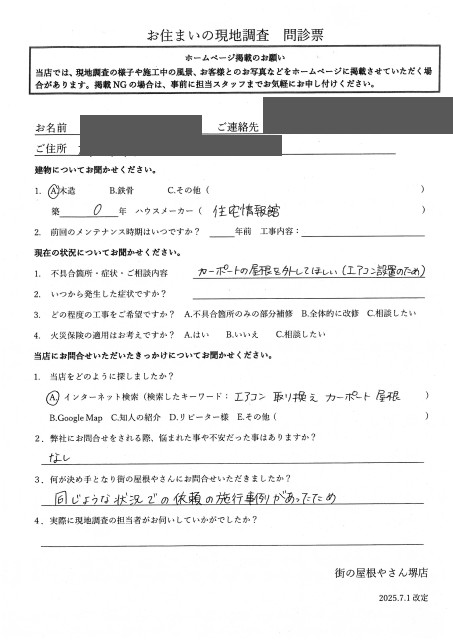 お住まいの現地調査 問診票
ホームページ掲載のお願い
当店では、現地調査の様子や施工中の風景、お客様とのお写真などをホームページに掲載させていただく場
合があります。掲載NGの場合は、事前に担当スタッフまでお気軽にお申し付けください。
お名前 ご連絡先
ご住所
建物についてお聞かせください。
1. A.木造 B.鉄骨 C.その他（ ）
築 0 年 ハウスメーカー（ 住宅情報館 ）
2. 前回のメンテナンス時期はいつですか？ 年前 工事内容：
現在の状況についてお聞かせください。
1. 不具合箇所・症状・ご相談内容 カーポートの屋根を外してほしい（エアコン設置のため）
2. いつから発生した症状ですか？
3. どの程度の工事をご希望ですか？ A.不具合箇所のみの部分補修 B.全体的に改修 C.相談したい
4. 火災保険の適用はお考えですか？ A.はい B.いいえ C.相談したい
当店にお問合せいただいたきっかけについてお聞かせください。
1. 当店をどのように探しましたか？
A. インターネット検索（検索したキーワード： エアコン 取り換え カーポート 屋根 ）
B.Google Map C.知人の紹介 D.リピーター様 E.その他（ ）
2．弊社にお問合せをされる際、悩まれた事や不安だった事はありますか？
なし
3．何が決め手となり街の屋根やさんにお問合せいただきましたか？
同じような状況での依頼の施行事例があったため
4．実際に現地調査の担当者がお伺いしていかがでしたか？
街の屋根やさん堺店
2025.7.1 改定